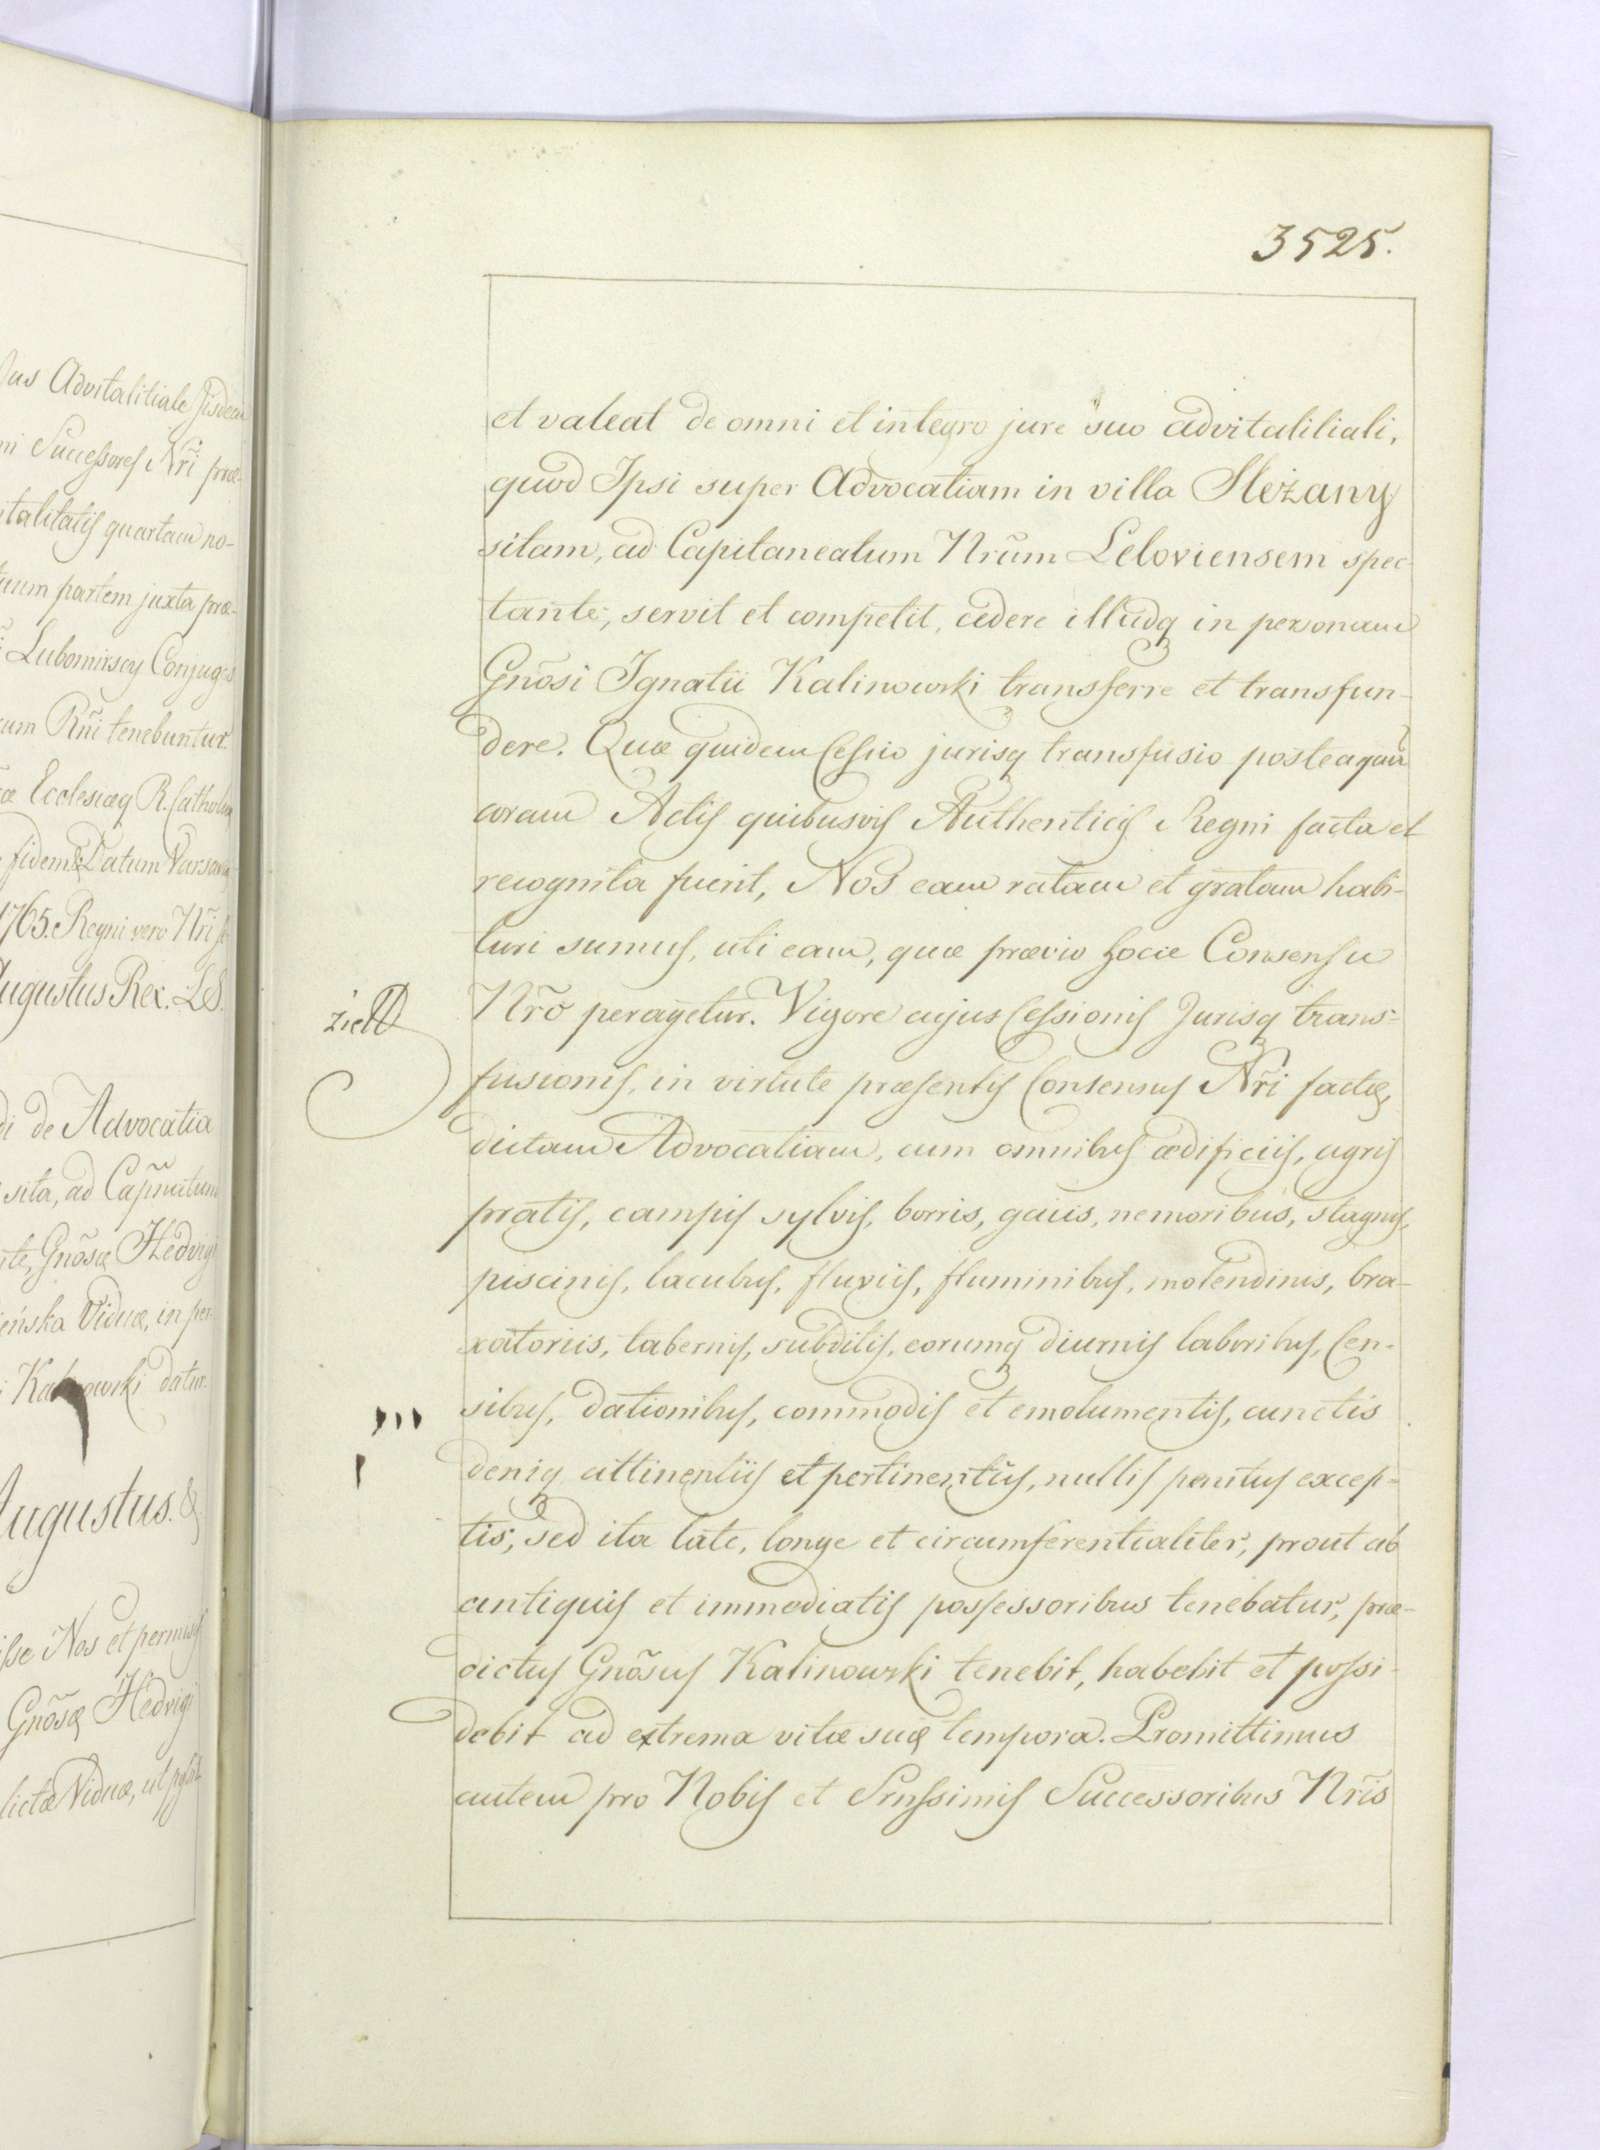 Jus Advitalitiale Jisdem
ni Successores Nri præ-
italitatis quartam no-
tuum partem juxta præ-
Lubomirscy Conjuges
cum Rni tenebuntur.
æ Ecclesiæq R. Catholicæ
fidem & Datum Varsaviæ
1765. Regni vero Nri
Augustus Rex. LS.
di de Advocatia
sita, ad Capñeatum
te, Gnosæ Hedvigi
ieńska Viduæ, in per-
Kalinowski datur.
Augustus. &
isse Nos et permis
Gnosæ Hedvigi
lictæ Viduæ, ut possit
3525.
et valeat de omni et integro jure suo advitalitiali,
quod Ipsi super Advocatiam in villa Slezany
sitam, ad Capitaneatum Nrum Leloviensem spec-
tante, servit et competit, cedere illudq in personam
Gnosi Ignatii Kalinowski transferre et transfun-
dere. Quæ quidem Cessio jurisq transfusio posteaquam
coram Actis quibusvis Authenticis Regni facta et
recognita fuerit, Nos eam ratam et gratam habi-
turi sumus, uti eam, quæ prævio hocce Consensu
Nro peragetur. Vigore cujus Cessionis Jurisq trans-
fusionis, in virtute præsentis Consensus Nri factæ,
dictam Advocatiam, cum omnibus ædificiis, agris
pratis, campis sylvis, borris, gaiis, nemoribus, stagnis,
piscinis, lacubus, fluviis, fluminibus, molendinis, bra-
xatoriis, tabernis, subditis, eorumq diurnis laboribus, Cen-
sibus, dationibus, commodis et emolumentis, cunctis
deniq attinentiis et pertinentiis, nullis penitus excep-
tis, sed ita late, longe et circumferentialiter, prout ab
antiquis et immediatis possessoribus tenebatur, præ-
dictus Gnosus Kalinowski tenebit, habebit et possi-
debit ad extrema vitæ suæ tempora. Promittimus
autem pro Nobis et Srnssimis Successoribus Nris